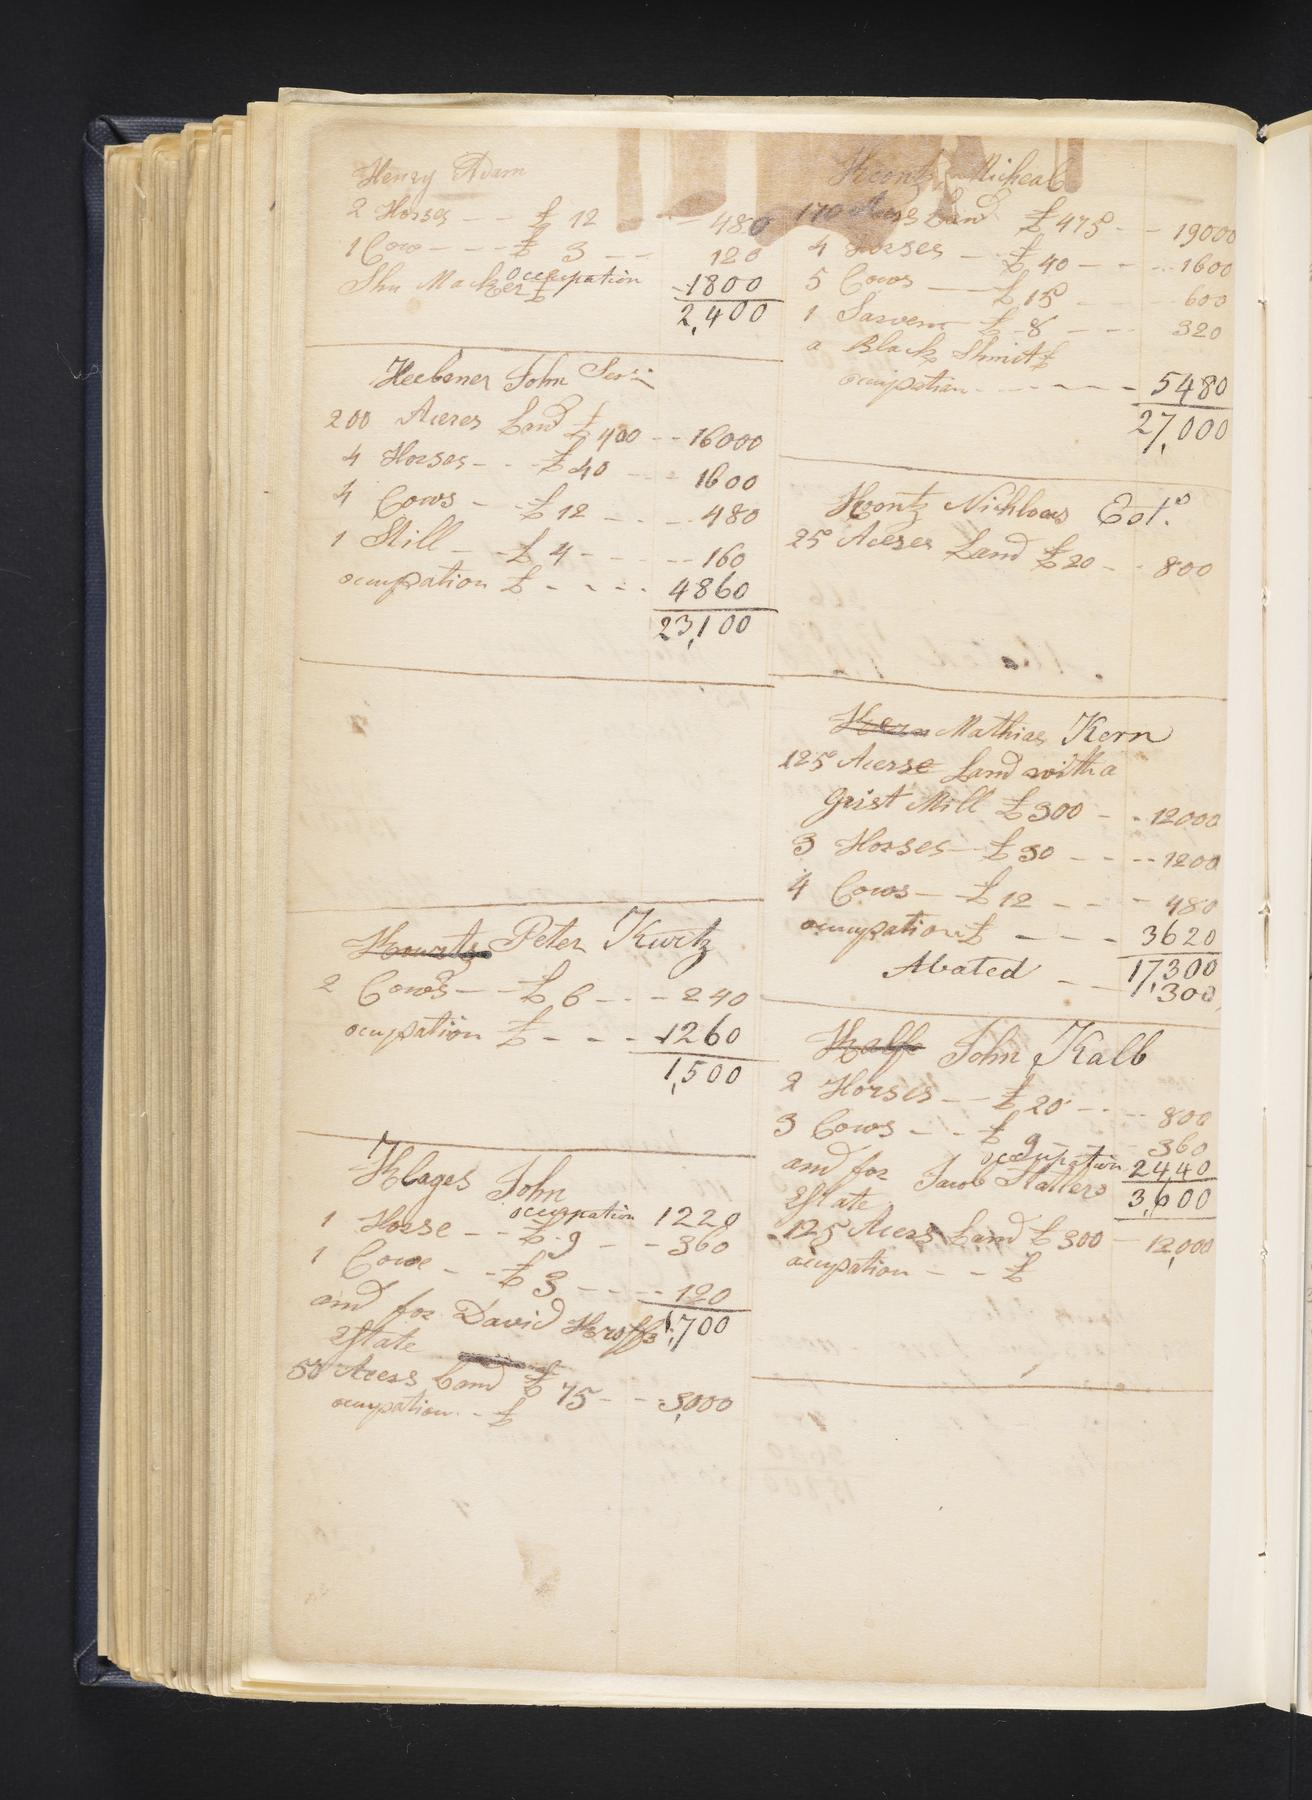 Henry Adam
2 Horses - - £ 12 - - 480
1 Cow - - - £ 3 - - 120
Shu Macker £ occupation 1800
2,400
Heebener John Senr
200 Acres Land £ 400 - - 16000
4 Horses - - £ 40 - - 1600
4 Cows - - £ 12 - - - 480
1 Still - - £ 4 - - - 160
ocupation £ - - - - 4860
23,100
Peter Kurtz
2 Cows - - £ 6 - - - 240
ocupation £ - - - 1260
1,500
Klages John
occupation 1220
1 Horse - - £ 9 - - 360
1 Cowe - - £ 3 - - - 120
1,700
and for David
Estate
50 Acers Land £ 75 - - 3,000
ocupation - - £
Koontz Micheal
170 Acers Land £ 475 - - 19000
4 Horses - - £ 40 - - - 1600
5 Cows - £ 15 - - - 600
1 Sarvent - £ 8 - - - 320
a Black Shmit £
ocupation - - - - - 5480
27,000
Koontz Nichloas Est.
25 Aceres Land £ 20 - - 800
Kern Mathias Kern
125 Acerse Land with a
Grist Mill £ 300 - - 12000
3 Horses - £ 30 - - - - 1200
4 Cows - - £ 12 - - - 480
ocupation £ - - - 3620
17,300
Abated - - 17,300
John Kalb
2 Horses - - £ 20 - - - 800
3 Cows - - £ 9 - - 360
occupation 2440
3,600
and for Jacob Statlers
Estate
125 Acers Land £ 300 - 12,000
ocupation - - £